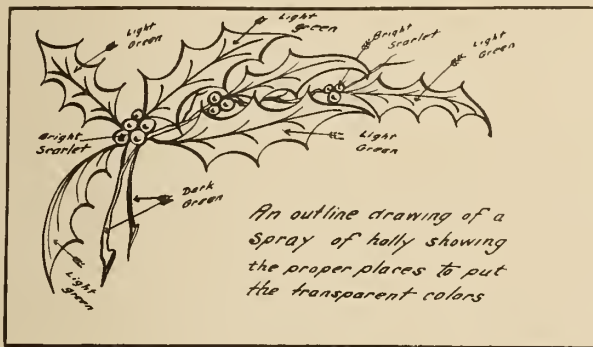 Light
Green
Light
green
Bright
Scarlet
Light
Green
Bright
Scarlet
Light
Green
Dark
Green
Light
green
An outline drawing of a
Spray of holly showing
the proper places to put
the transparent colors